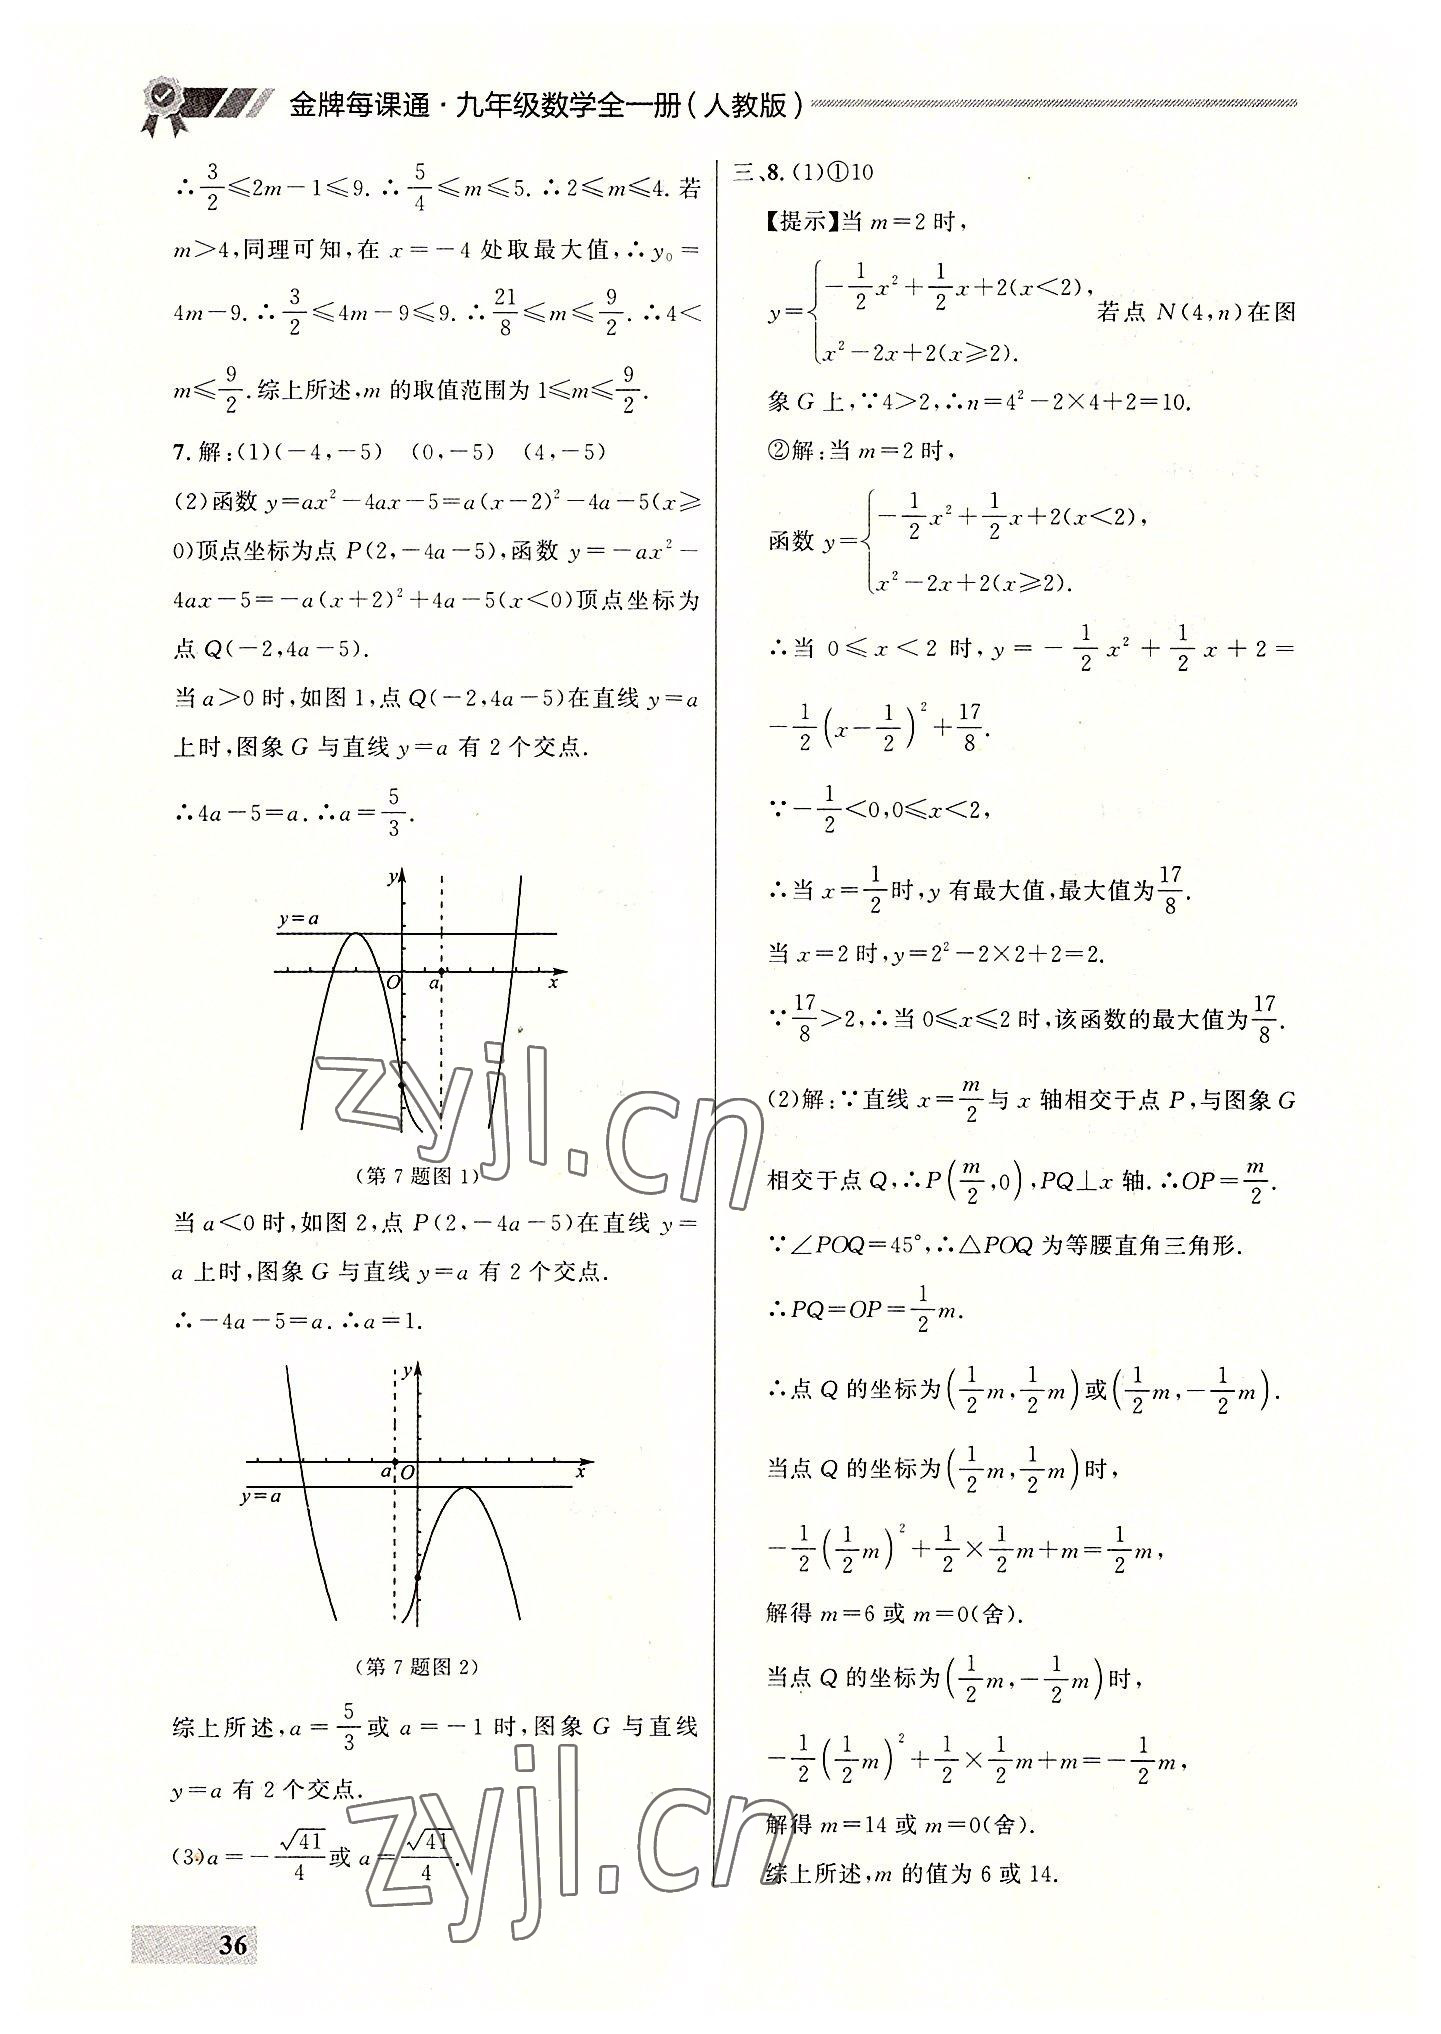 金牌每课通·九年级数学全一册(人教版)
∴3/2≤2m-1≤9.∴5/4≤m≤5.∴2≤m≤4.若
m>4,同理可知,在 x=-4 处取最大值,∴y₀=
4m-9.∴3/2≤4m-9≤9.∴21/8≤m≤9/2.∴4<
m≤9/2.综上所述,m 的取值范围为 1≤m≤9/2.
7.解:(1)(-4,-5) (0,-5) (4,-5)
(2)函数 y=ax²-4ax-5=a(x-2)²-4a-5(x≥
0)顶点坐标为点 P(2,-4a-5),函数 y=-ax²-
4ax-5=-a(x+2)²+4a-5(x<0)顶点坐标为
点 Q(-2,4a-5).
当 a>0 时,如图 1,点 Q(-2,4a-5)在直线 y=a
上时,图象 G 与直线 y=a 有 2 个交点.
∴4a-5=a.∴a=5/3.
y
y=a
O
a
x
(第 7 题图 1)
当 a<0 时,如图 2,点 P(2,-4a-5)在直线 y=
a 上时,图象 G 与直线 y=a 有 2 个交点.
∴-4a-5=a.∴a=1.
y
a
O
x
y=a
(第 7 题图 2)
综上所述,a=5/3或 a=-1 时,图象 G 与直线
y=a 有 2 个交点.
(3)a=-√41/4或 a=√41/4.
36
三、8.(1)①10
【提示】当 m=2 时,
y={-1/2x²+1/2x+2(x<2),
x²-2x+2(x≥2).
若点 N(4,n)在图
象 G 上,∵4>2,∴n=4²-2×4+2=10.
②解:当 m=2 时,
函数 y={-1/2x²+1/2x+2(x<2),
x²-2x+2(x≥2).
∴当 0≤x<2 时,y=-1/2x²+1/2x+2=
-1/2(x-1/2)²+17/8.
∵-1/2<0,0≤x<2,
∴当 x=1/2时,y 有最大值,最大值为17/8.
当 x=2 时,y=2²-2×2+2=2.
∵17/8>2,∴当 0≤x≤2 时,该函数的最大值为17/8.
(2)解:∵直线 x=m/2与 x 轴相交于点 P,与图象 G
相交于点 Q,∴P(m/2,0),PQ⊥x 轴.∴OP=m/2.
∵∠POQ=45°,∴△POQ 为等腰直角三角形.
∴PQ=OP=1/2m.
∴点 Q 的坐标为(1/2m,1/2m)或(1/2m,-1/2m).
当点 Q 的坐标为(1/2m,1/2m)时,
-1/2(1/2m)²+1/2×1/2m+m=1/2m,
解得 m=6 或 m=0(舍).
当点 Q 的坐标为(1/2m,-1/2m)时,
-1/2(1/2m)²+1/2×1/2m+m=-1/2m,
解得 m=14 或 m=0(舍).
综上所述,m 的值为 6 或 14.
zyjl.cn
zyjl.cn